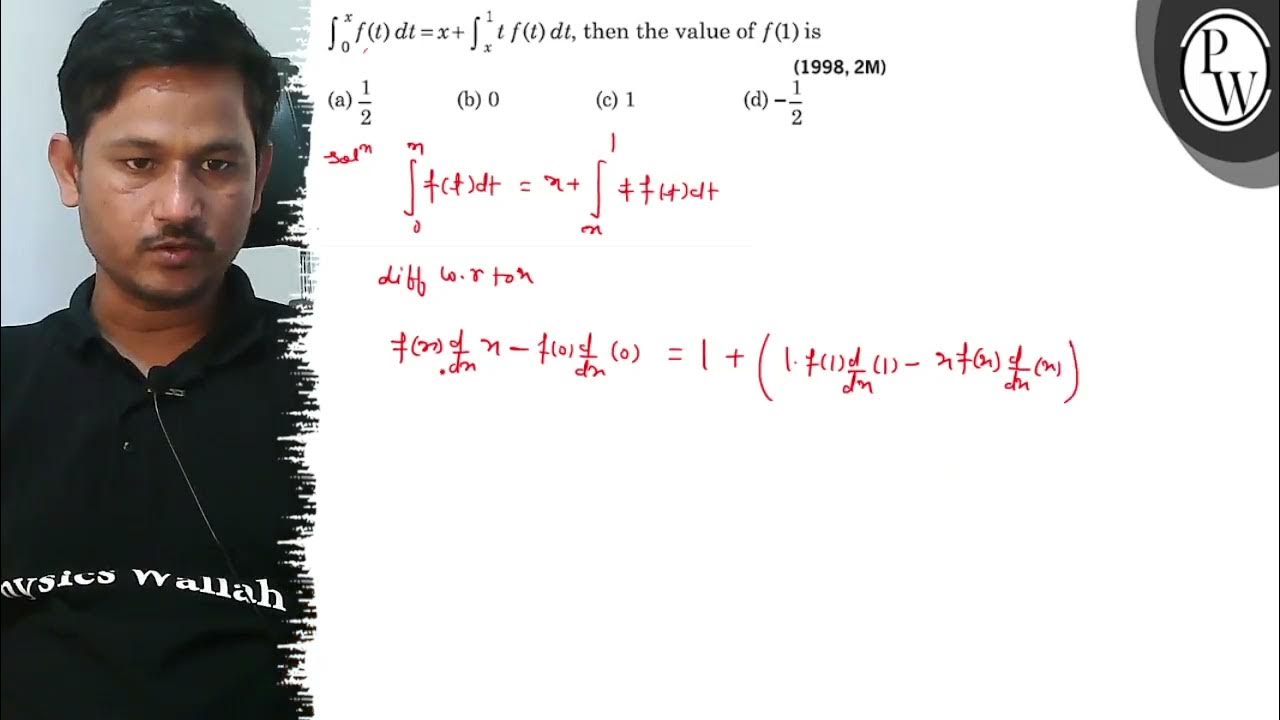 ∫₀ˣ f(t) dt = x + ∫ₓ¹ t f(t) dt, then the value of f(1) is
(1998, 2M)
(a) 1/2 (b) 0 (c) 1 (d) −1/2
solⁿ ∫₀ˣ f(t)dt = x + ∫ₓ¹ t f(t)dt
diff w.r to x
f(x) d/dx x − f(0) d/dx (0) = 1 + (1. f(1) d/dx (1) − x f(x) d/dx (x))
PW
hysics Wallah